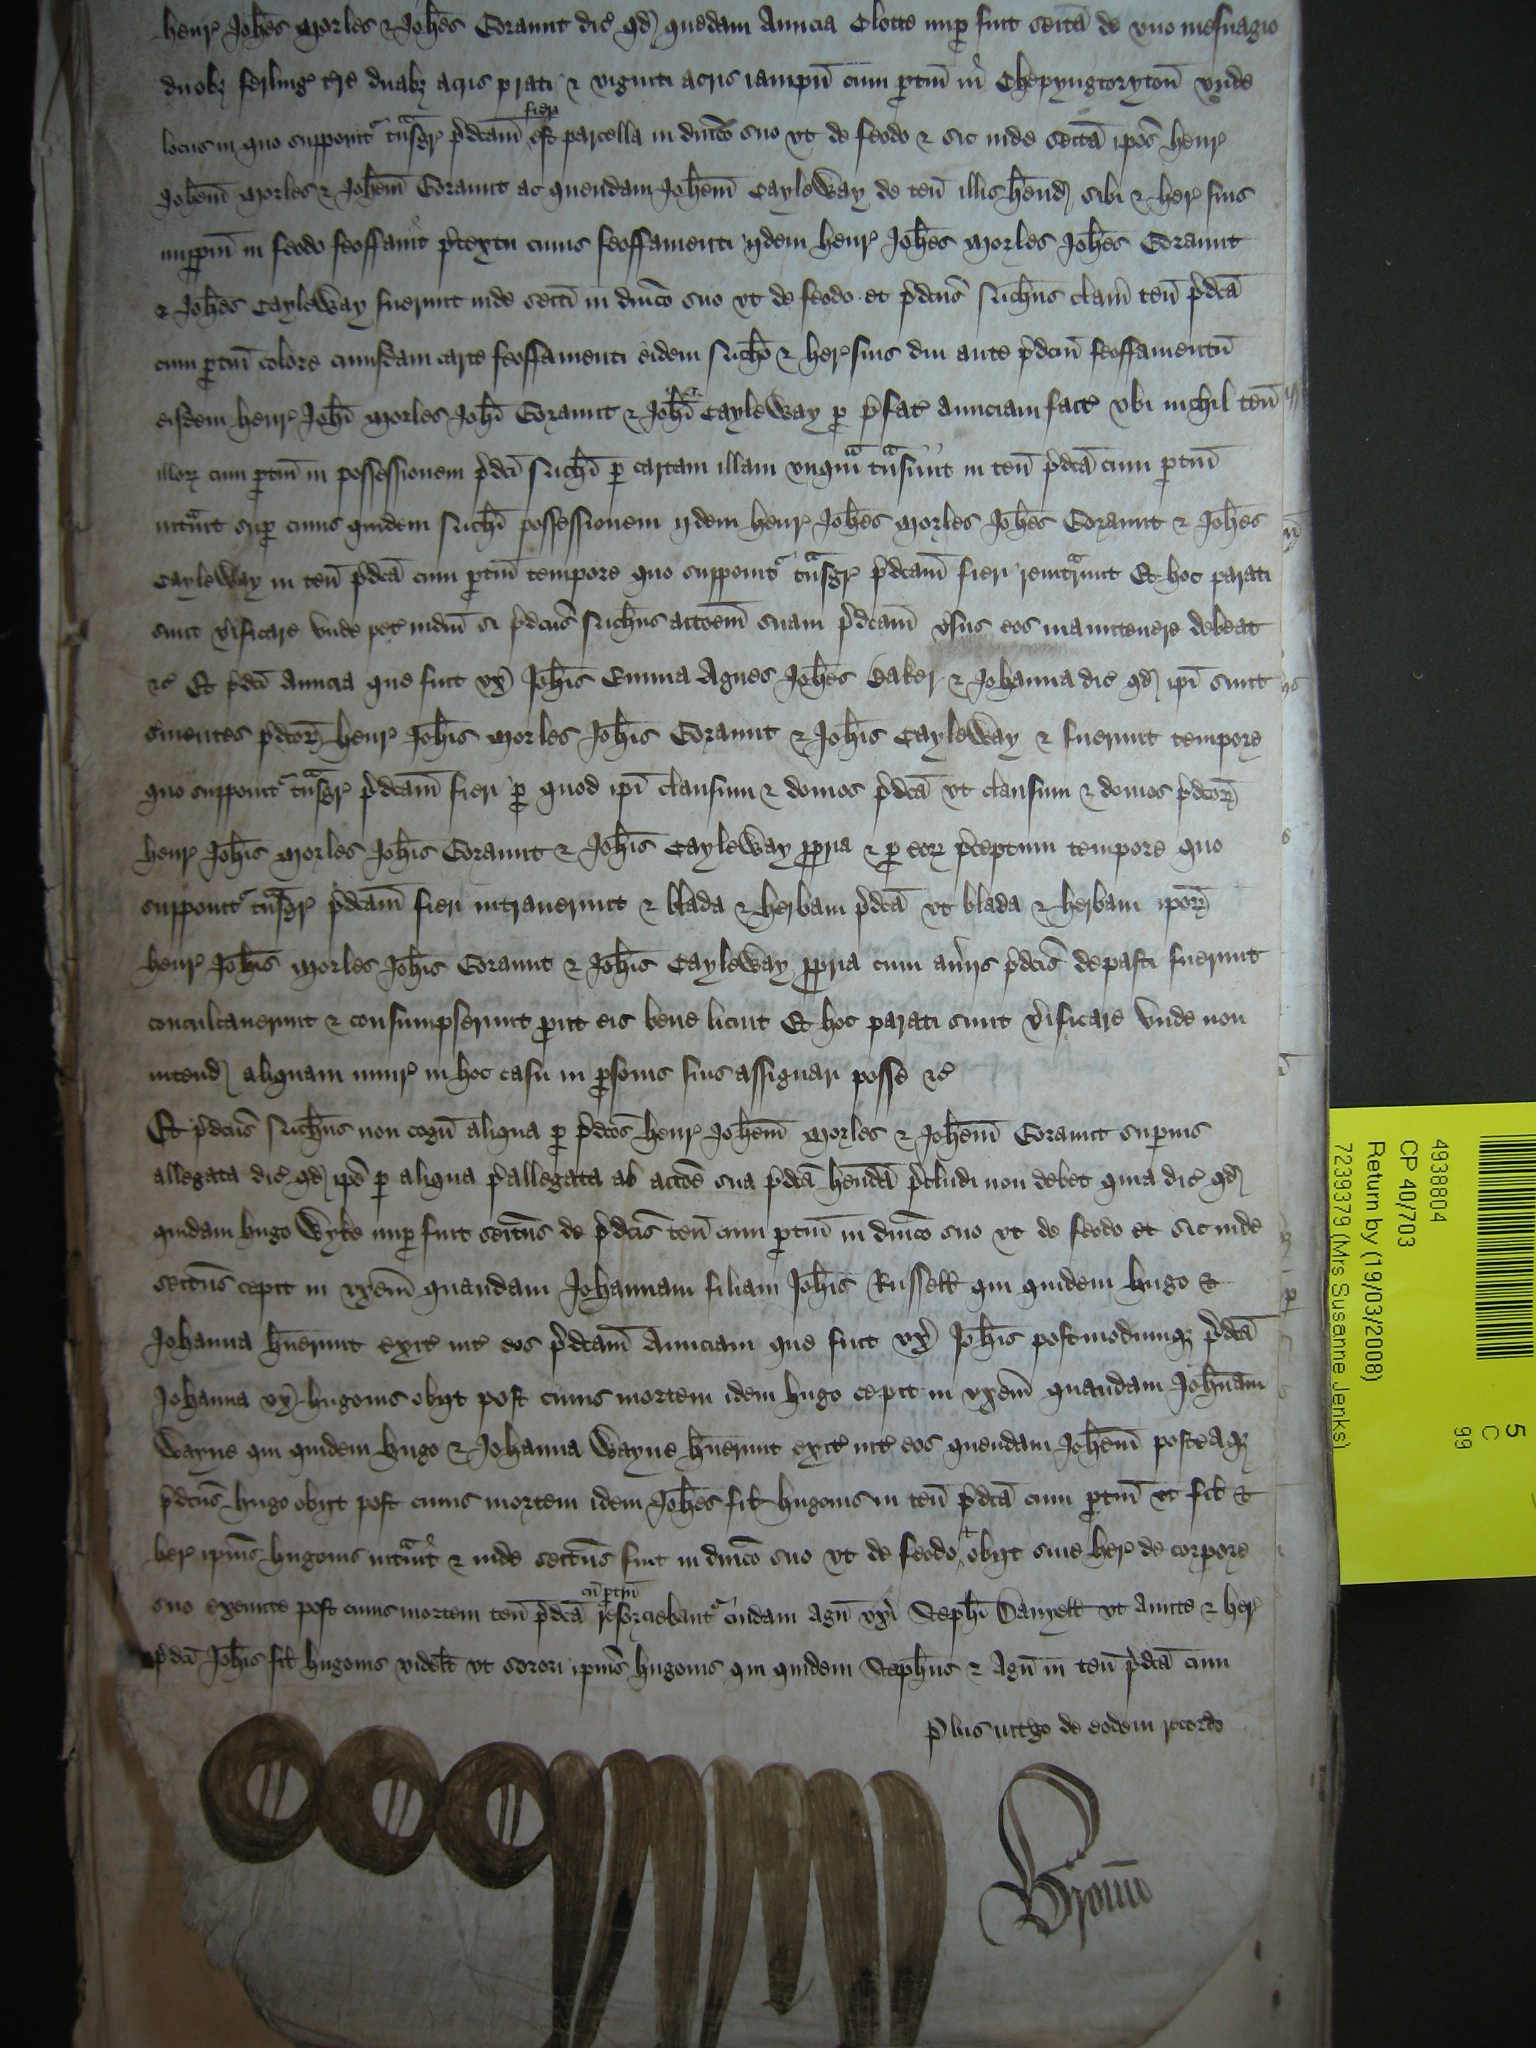 Henr' Joh̄es Morles & Joh̄es Coraunt dic' qd' quedam Amicia Clotte nup' fuit sei͡ta de uno mesuagio
duob3 ferling' t're duab3 acris prati & viginti acris iampn̄ cum p'tin̄ in Chepyngtoryton̄ unde
locus in quo supponit' tn̄sgr' p'dcam̄ fieri est parcella in dn̄ico suo ut de feodo & sic inde seita ip̄os Henr'
Joh̄em Morles & Joh̄em Coraunt ac quendam Joh̄em Cayleway de ten̄ illis h̄end' sibi & her' suis
imp'pm̄ in feodo feoffavit p'textu cuius feoffamenti ijdem Henr' Joh̄es Morles Joh̄es Coraunt
& Joh̄es Cayleway fuerunt inde seiti in dn̄ico suo ut de feodo et p'dcus Nich̄us clam̄ ten̄ p'dca
cum p'tin̄ colore cuiusdam carte feoffamenti eidem Nich̄o & her' suis diu ante p'dcm̄ feoffamentū
eisdem Henr' Joh̄i Morles Joh̄i Coraunt & Joh̄i Cayleway p' p'fat' Amiciam fact' ubi nichil ten̄
illor' cum p'tin̄ in possessionem p'dci Nich̄i p' cartam illam unqua tn̄siuit in ten̄ p'dca cum p'tin̄
intravit sup' cuius quidem Nich̄i possessionem ijdem Henr' Joh̄es Morles Joh̄es Coraunt & Joh̄es
Cayleway in ten̄ p'dca cum p'tin̄ tempore quo supponit' tn̄sgr' p'dcam̄ fieri reintrarunt Et hoc parati
sunt v'ificare unde pet' iudm̄ si p'dcus Nich̄us acc̄oem̄ suam p'dcam̄ v'sus eos manutenere debeat
&c' Et p'dci Amicia que fuit ux' Joh̄is Emma Agnes Joh̄es Baker & Johanna dic' qd' ip̄i sunt
s'uientes p'dcor' Henr' Joh̄is Morles Joh̄is Coraunt & Joh̄is Cayleway & fuerunt tempore
quo supponit' tn̄sgr' p'dcam̄ fieri p' quod ip̄i clausum & domos p'dca ut clausum & domos p'dcor'
Henr' Joh̄is Morles Joh̄is Coraunt & Joh̄is Cayleway p'pria & p' eor' p'ceptum tempore quo
supponit' tn̄sgr' p'dcam̄ fieri intraverunt & blada & herbam p'dca ut blada & herbam ip̄or'
Henr' Joh̄is Morles Joh̄is Coraunt & Joh̄is Cayleway p'pria cum au'iis p'dcis depasti fuerunt
conculcaverunt & consumpserunt p'ut eis bene licuit Et hoc parati sunt v'ificare unde non
intend' aliquam iniur' in hoc casu in p'sonis suis assignari posse &c'
Et p'dcus Nich̄us non cogn̄ aliqua p' p'dcos Henr' Joh̄em Morles & Joh̄em Coraunt superius
allegata dic' qd' ip̄e p' aliqua p'allegata ab acc̄oe sua p'dca h̄enda p'cludi non debet quia dic' qd'
quidam Hugo Wyke nup' fuit seitus de p'dcis ten̄ cum p'tin̄ in dn̄ico suo ut de feodo et sic inde
seitus cepit in uxem̄ quandam Johannam filiam Joh̄is Russell qui quidem Hugo &
Johanna h̄uerunt exit' int' eos p'dcam̄ Amiciam que fuit ux' Joh̄is postmodumq3 p'dca
Johanna ux' Hugonis obijt post cuius mortem idem Hugo cepit in uxem̄ quandam Joh̄nam
Wayne qui quidem Hugo & Johanna Wayne h̄uerunt exit' int' eos quendam Joh̄em̄ posteaq3
p'dcus Hugo obijt post cuius mortem idem Joh̄es fil' Hugonis in ten̄ p'dca cum p'tin̄ ut fil' &
her' ip̄ius Hugonis intravit & inde seitus fuit in dn̄ico suo ut de feodo & obijt sine her' de corpore
suo exeunte post cuius mortem ten̄ p'dca cū p'tin̄ resorciebant' cuidam Agn̄ ux'i Steph̄i Danyell ut amite & her'
p'dci Joh̄is fil' Hugonis videl't ut sorori ip̄ius Hugonis qui quidem Steph̄us & Agn̄ in ten̄ p'dca cum
Plus in t'go de eodem recordo
Broun
4938804
CP 40/703
Return by (19/03/2008)
7239379 (Mrs Susanne Jenks)
5
C
99